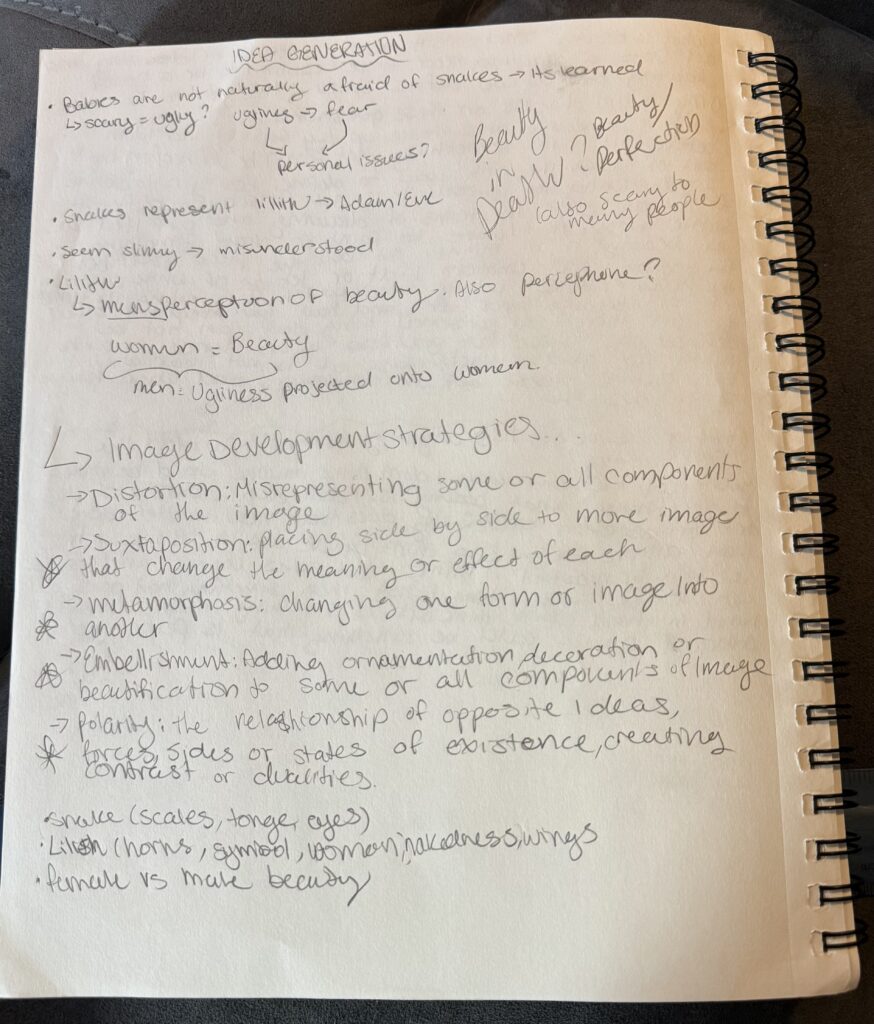 IDEA GENERATION
• Babies are not naturally afraid of snakes → its learned
↳ scary = ugly? uglines → fear
personal issues?
Beauty
in
Death
? Beauty/
Perfection
(also scary to
many people
• Snakes represent lillith → Adam/Eve
• Seem slimy → misunderstood
• Lilith
↳ mens perception of beauty. Also persephone?
women = Beauty
men = Ugliness projected onto women.
↳ Image Development strategies...
→ Distortion: Misrepresenting some or all components
of the image
→ Juxtaposition: placing side by side to more image
that change the meaning or effect of each
→ metamorphosis: changing one form or image into
another
→ Embellishment: Adding ornamentation, deceration or
beautification to some or all components of image
→ polarity: the relashionship of opposite ideas,
forces, sides or states of existence, creating
contrast or dualities.
• snake (scales, tonge, eyes)
• Lilith (horns, symbol, women, nakedness, wings
• female vs male beauty